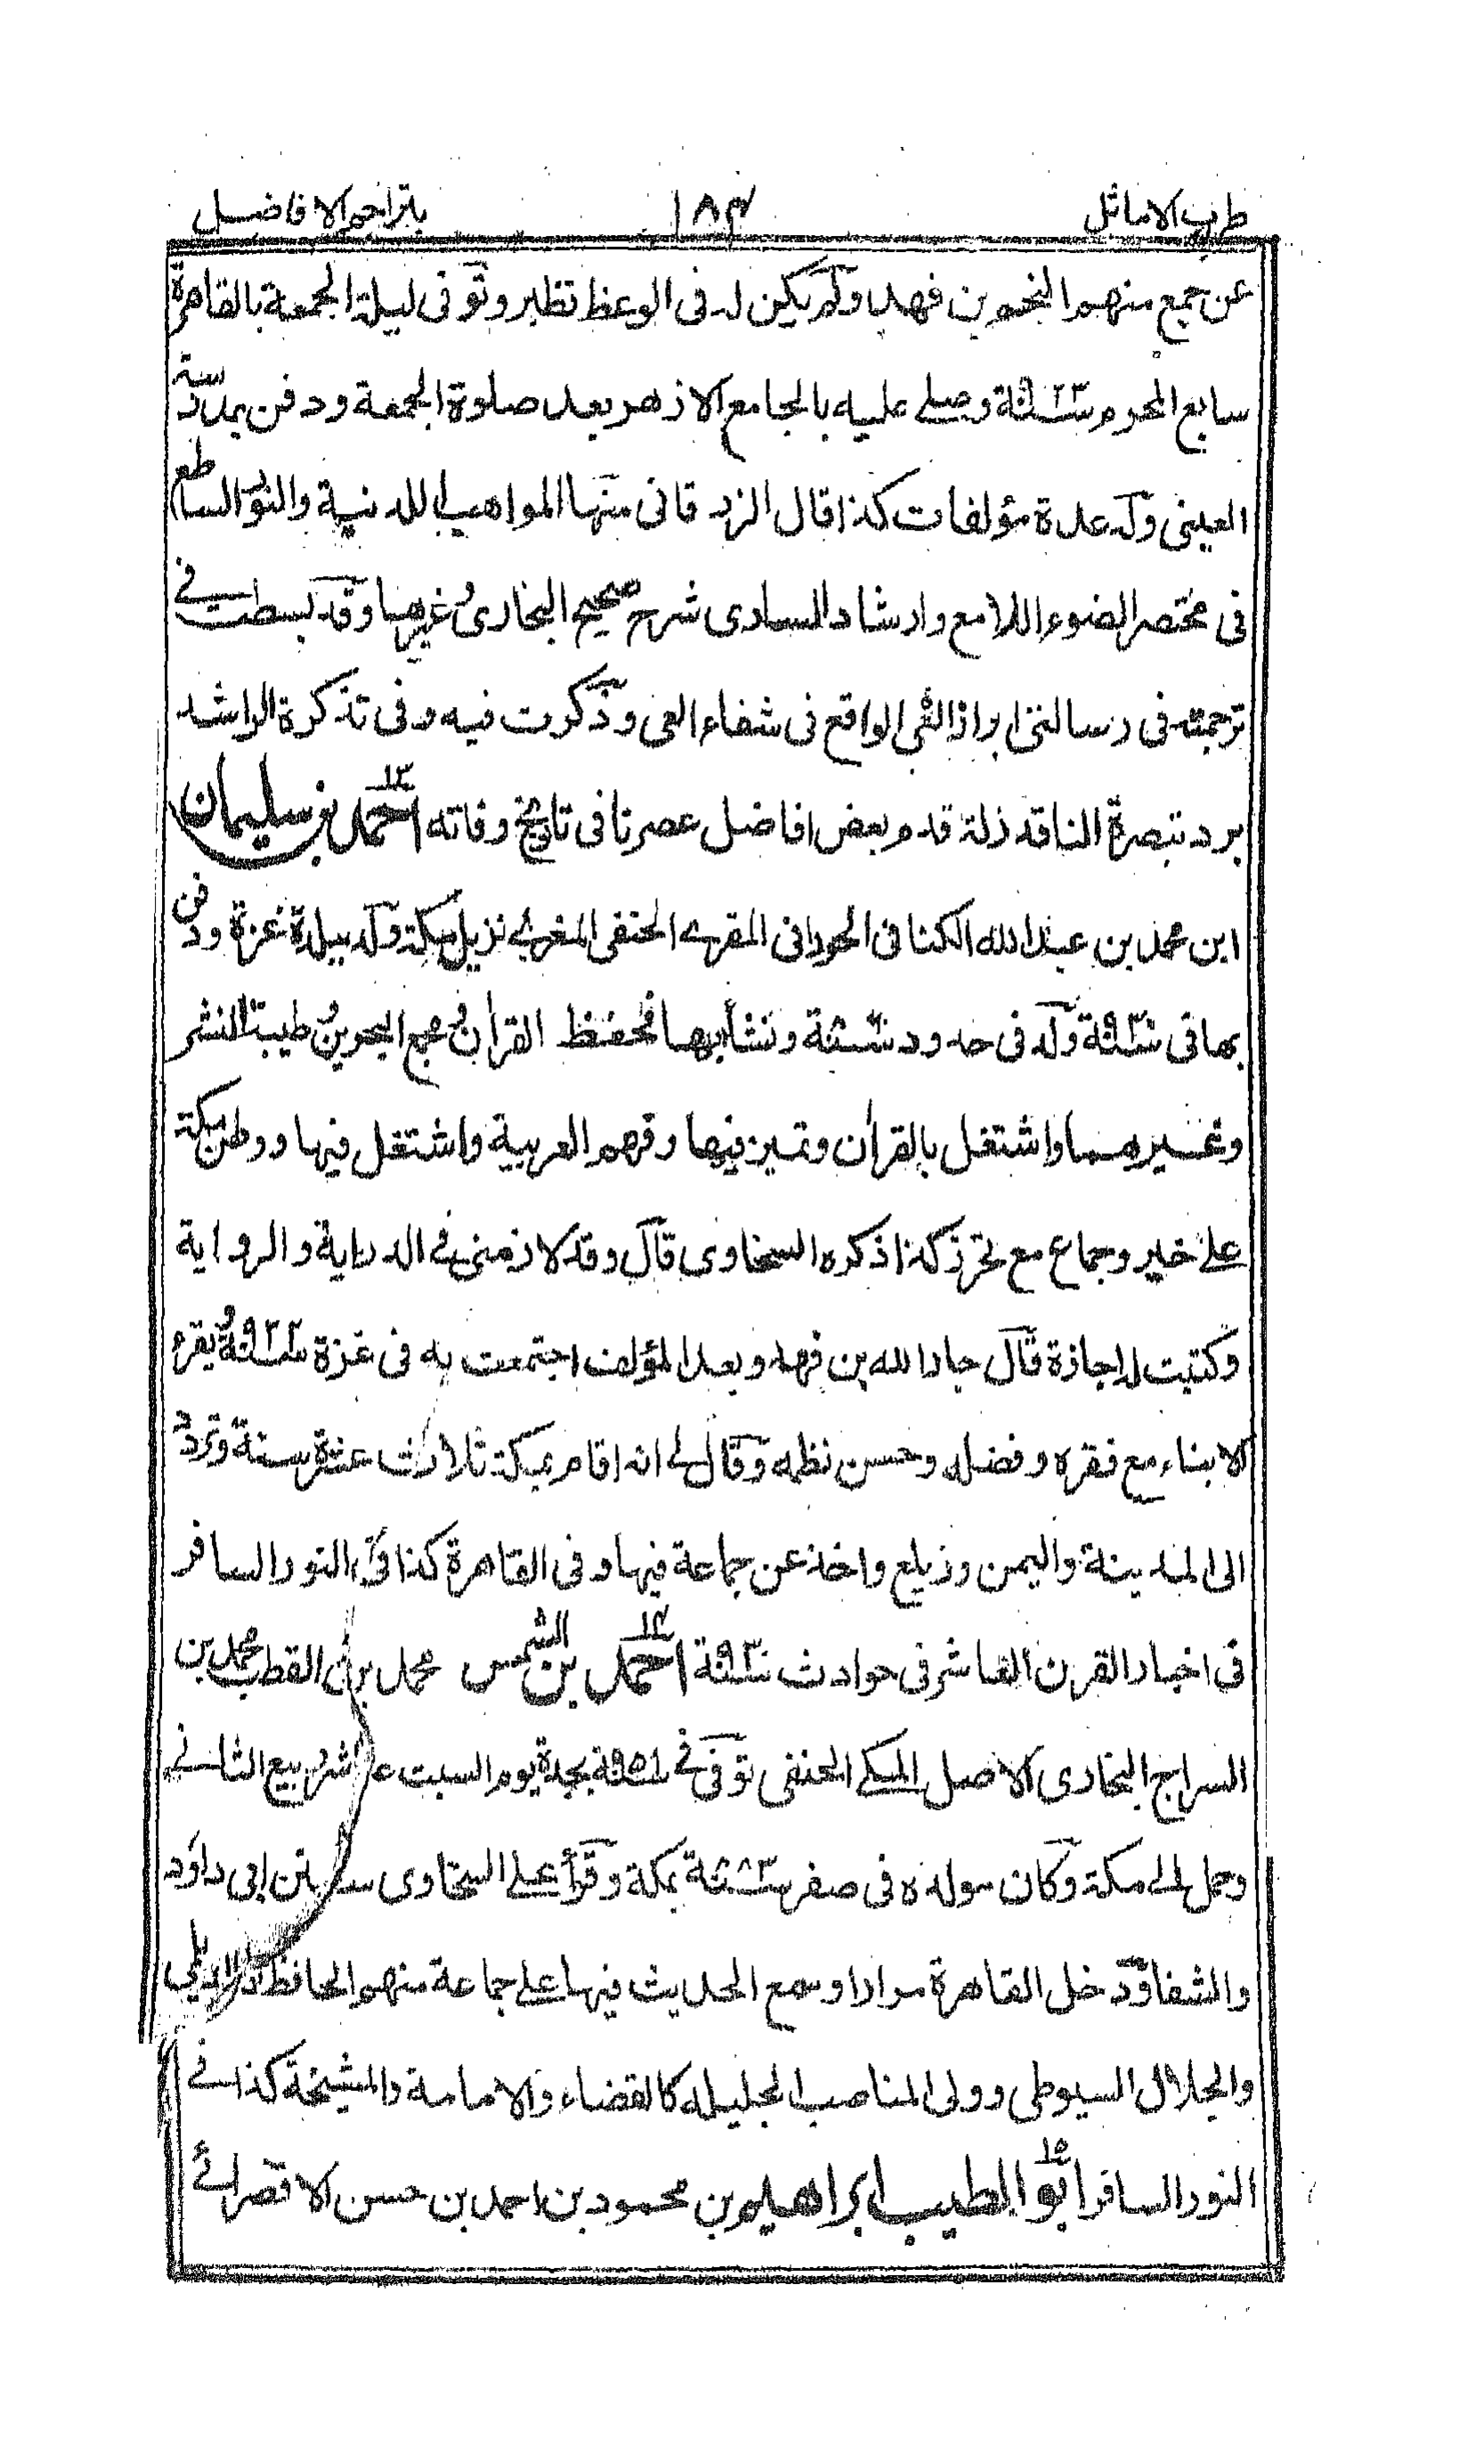 طرب الاماثل ١٨٣ بتراجم الافاضل
عن جمع منهم النجم بن فهد ولم يكن له فى الوعظ نظير وتوفى ليلة الجمعة بالقاهرة
سابع المحرم سنة ٩٢٣ وصلے عليه بالجامع الازهر بعد صلوة الجمعة ودفن بمدرسة
العينى وله عدة مؤلفات كذا قال الزرقانى منها المواهب اللدنية والنور الساطع
فى مختصر الضوء اللامع وارشاد السارى شرح صحيح البخارى وغيرها وقد بسطت فے
ترجمته فى رسالتى ابراز الغى الواقع فى شفاء العى وذكرت فيه وفى تذكرة الراشد
برد تبصرة الناقد زلة قدم بعض افاضل عصرنا فى تاريخ وفاته ١٣ احمد بن سليمان
ابن محمد بن عبد الله الكنانى الحورانى المقرے الحنفى المغربے نزيل مكة ولد ببلدة غزة ودفن
بها فى سنة ٩٣٠ ولد فى حدود سنة ونشأ بها فحفظ القرآن ومجمع البحرين وطيبة النشر
وغيرهما واشتغل بالقرآن وتميز فيها وفهم العربية واشتغل فيها ووطن مكة
علے خير وجماع مع تحرز كذا ذكره السخاوى قال وقد لازمنى فے الدراية والرواية
وكتبت له اجازة قال جار الله بن فهد وبعد المؤلف اجتمعت به فى غزة سنة ٩٢٢ ويقرء
الابناء مع فقره وفضله وحسن نظمه وقال لے انه اقام بمكة ثلاث عشرة سنة وتردد
الى المدينة واليمن وزيلع واخذ عن جماعة فيها وفى القاهرة كذا فى النور السافر
فى اخبار القرن العاشر فى حوادث سنة ٩٣٠ ١٤ احمد بن الشمس محمد بن القطب محمد بن
السراج البخارى الاصل المكے الحنفى توفى فے سنة ٩٥١ بجدة يوم السبت عاشر ربيع الثانے
وحمل الے مكة وكان مولده فى صفر سنة ٨٨٣ بمكة وقرأ علے السخاوى سنن ابى داود
والشفا ودخل القاهرة مرارا وسمع الحديث فيها علے جماعة منهم الحافظ الديلى
والجلال السيوطى وولى المناصب الجليله كالقضاء والامامة والمشيخة كذا فے
النور السافر ١٥ ابو الطيب ابراهيم بن محمود بن احمد بن حسن الاقصرائے